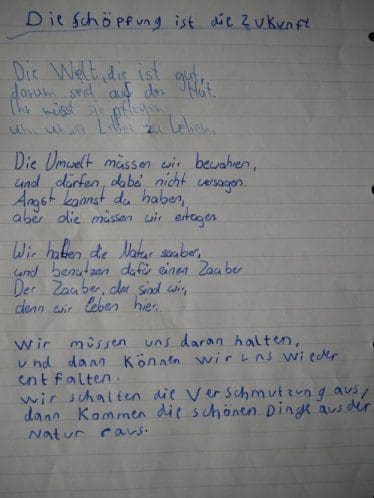 Die Schöpfung ist die Zukunft
Die Welt, die ist gut,
darum seid auf der Hut.
Ihr müsst sie pflegen
um unser Leben zu Leben.
Die Umwelt müssen wir bewahren,
und dürfen dabei nicht versagen.
Angst kannst du haben,
aber die müssen wir ertagen
Wir halten die Natur sauber,
und benutzen dafür einen Zauber
Der Zauber, der sind wir,
denn wir leben hier.
Wir müssen uns daran halten,
und dann können wir uns wieder
entfalten.
Wir schalten die Verschmutzung aus,
dann kommen die schönen Dinge aus der
Natur raus.